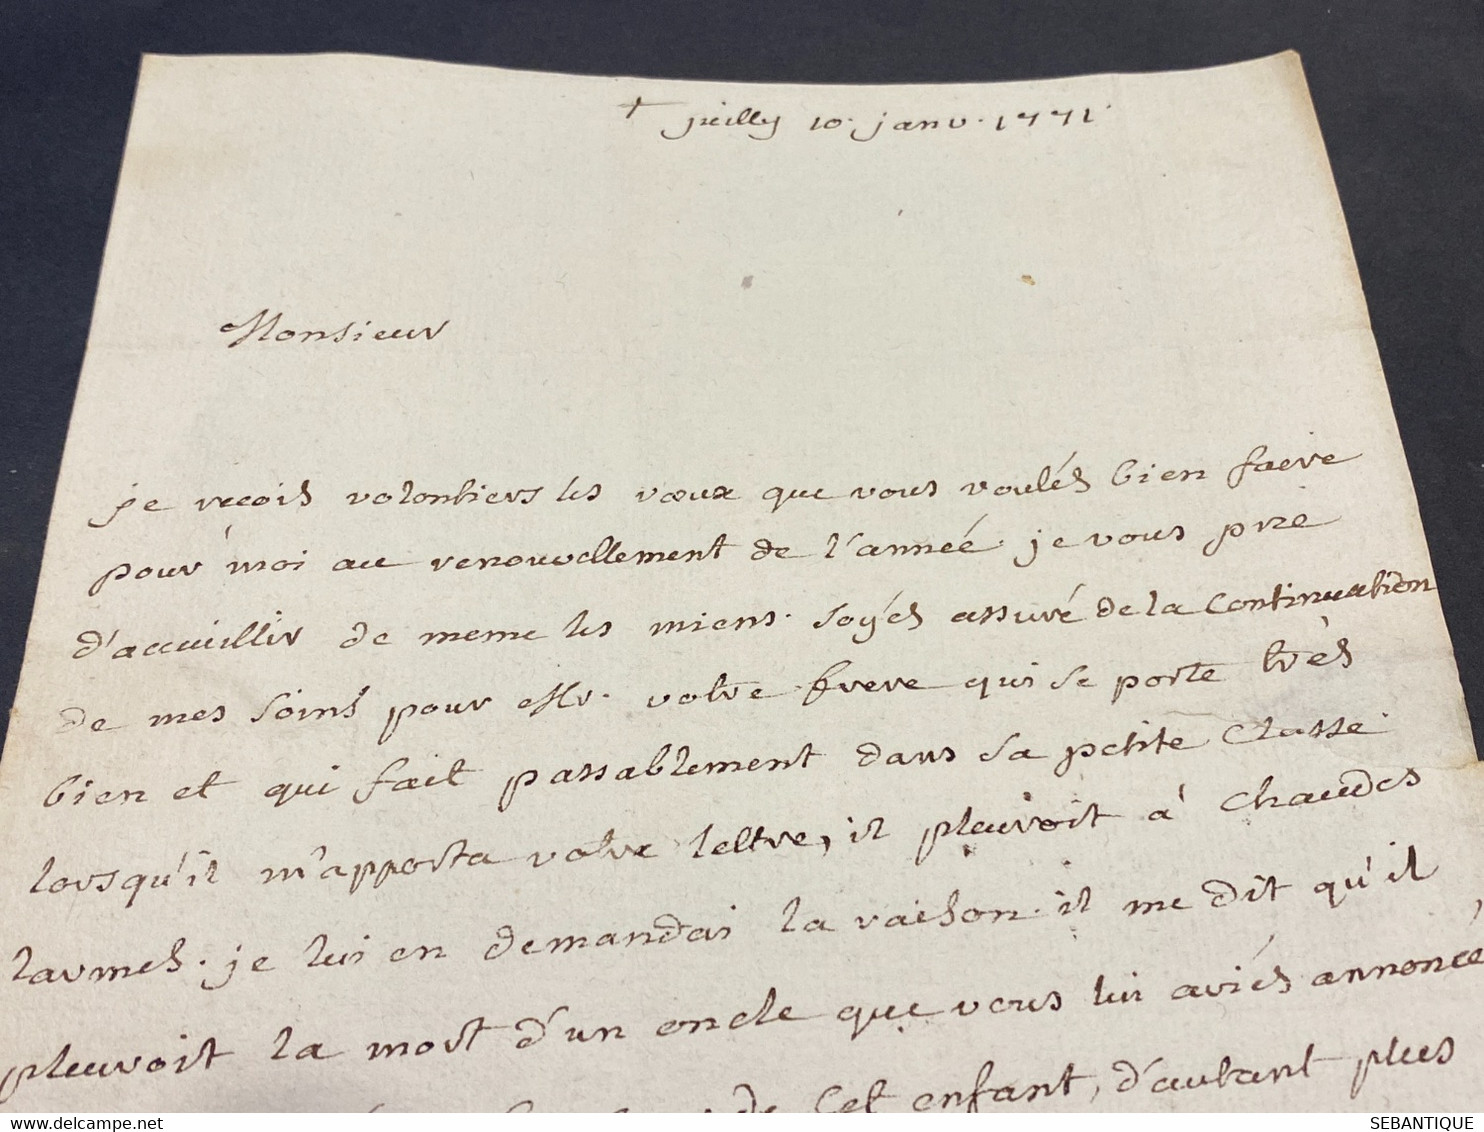 † juilly 10. janv. 1771.
Monsieur
je recois volontiers les vœux que vous voulés bien faire
pour moi au renouvellement de l'année. je vous prie
d'accuillir de meme les miens. soyés assuré de la Continuation
de mes soins pour Mr. votre frere qui se porte très
bien et qui fait passablement dans sa petite Classe.
lorsqu'il m'apporta votre lettre, il pleuroit à chaudes
larmes. je lui en demandai la raison. il me dit qu'il
pleuroit la mort d'un oncle que vous lui aviés annoncé,
de Cet enfant, d'autant plus
SEBANTIQUE